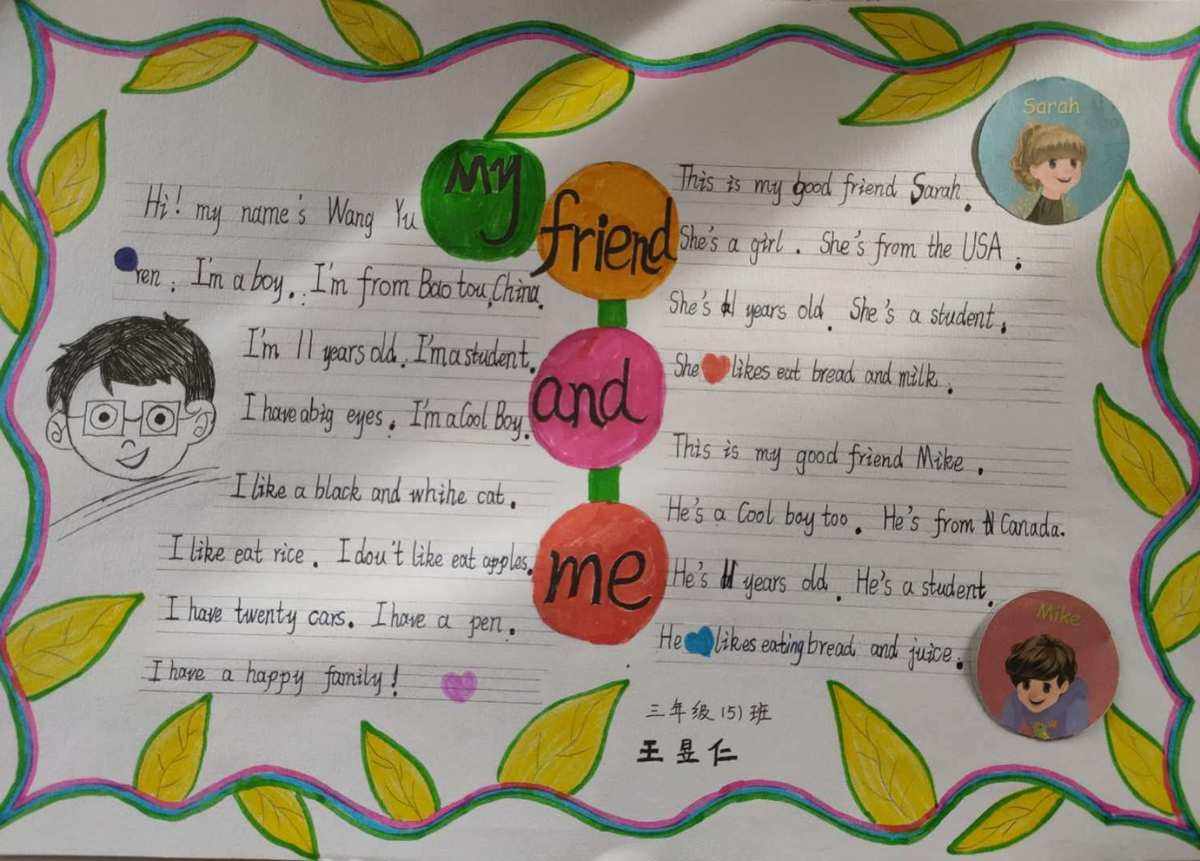 My
friend
and
me
Hi! my name's Wang Yu
ren. I'm a boy. I'm from Bao tou, China.
I'm 11 years old. I'm a student.
I have a big eyes. I'm a Cool Boy.
I like a black and whihe cat.
I like eat rice. I dou't like eat apples.
I have twenty cars. I have a pen.
I have a happy family!
This is my good friend Sarah.
She's a girl. She's from the USA.
She's 11 years old. She's a student.
She likes eat bread and milk.
This is my good friend Mike.
He's a Cool boy too. He's from Canada.
He's 11 years old. He's a student.
He likes eating bread and juice.
三年级(5)班
王昱仁
Sarah
Mike